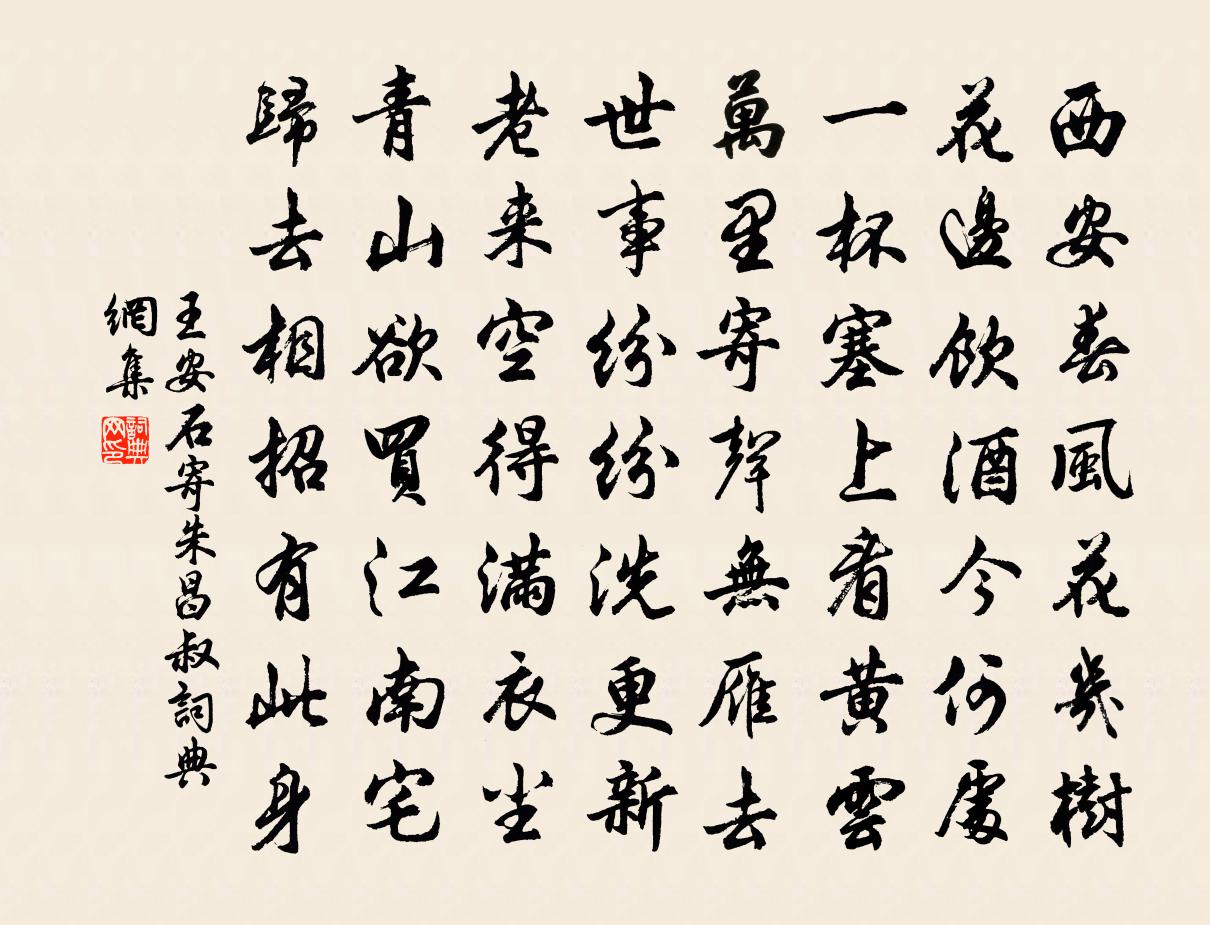 西安春風花幾樹
花邊飲酒今何處
一杯塞上看黃雲
萬里寄聲無雁去
世事紛紛洗更新
老来空得滿衣尘
青山欲買江南宅
歸去相招有此身
王安石寄朱昌叔詞典
網集
詞典
网印